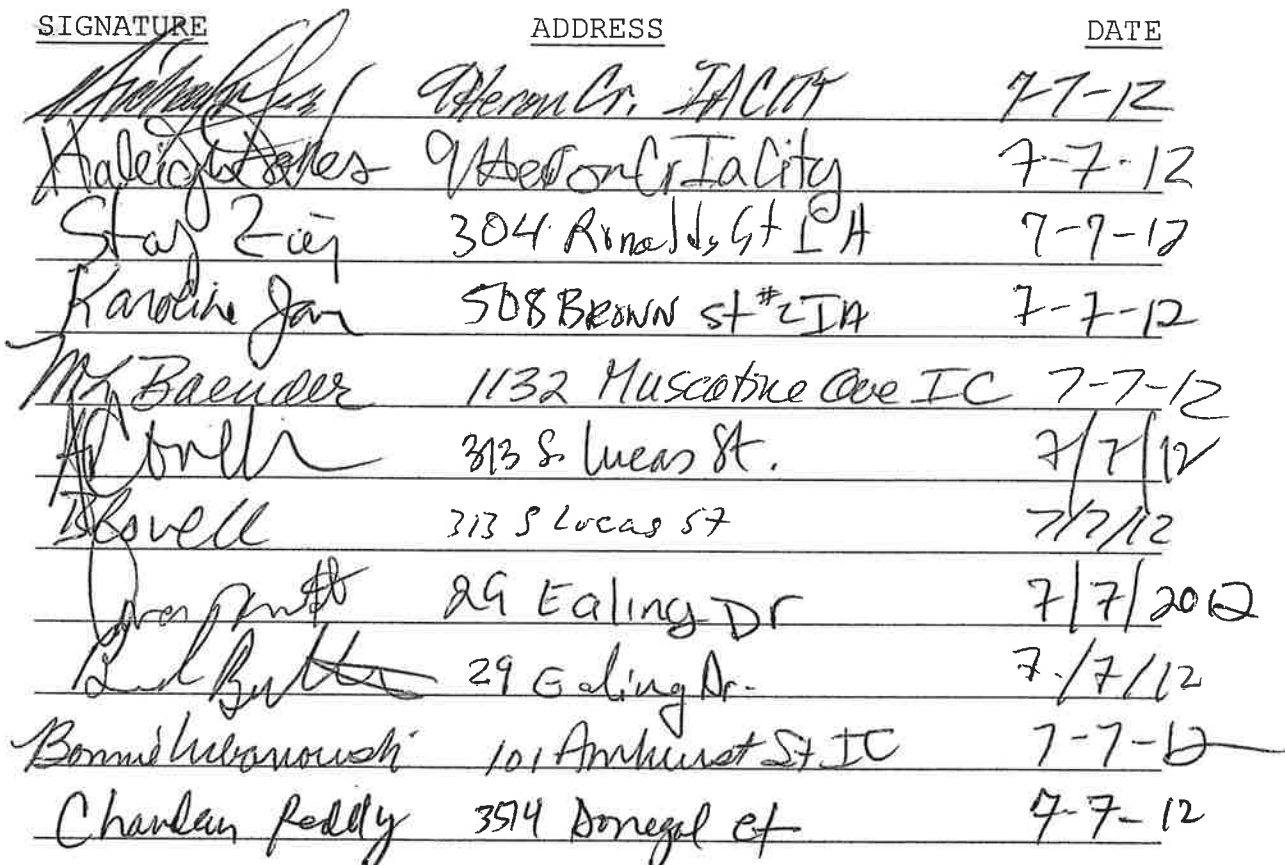 SIGNATURE ADDRESS DATE
9 Heron Cr. IA CITY 7-7-12
Haleigh 9 Heron Cr Ia City 7-7-12
304 Ronalds St IA 7-7-12
Karoline 508 BROWN St #2 IA 7-7-12
Baeuder 1132 Muscatine Ave IC 7-7-12
313 S. Lucas St. 7/7/12
313 S Lucas ST 7/7/12
29 Ealing Dr 7/7/2012
29 Ealing Dr. 7/7/12
Bonnie 101 Amhurst St IC 7-7-12
Chandan Reddy 3514 Donegal ct 7-7-12